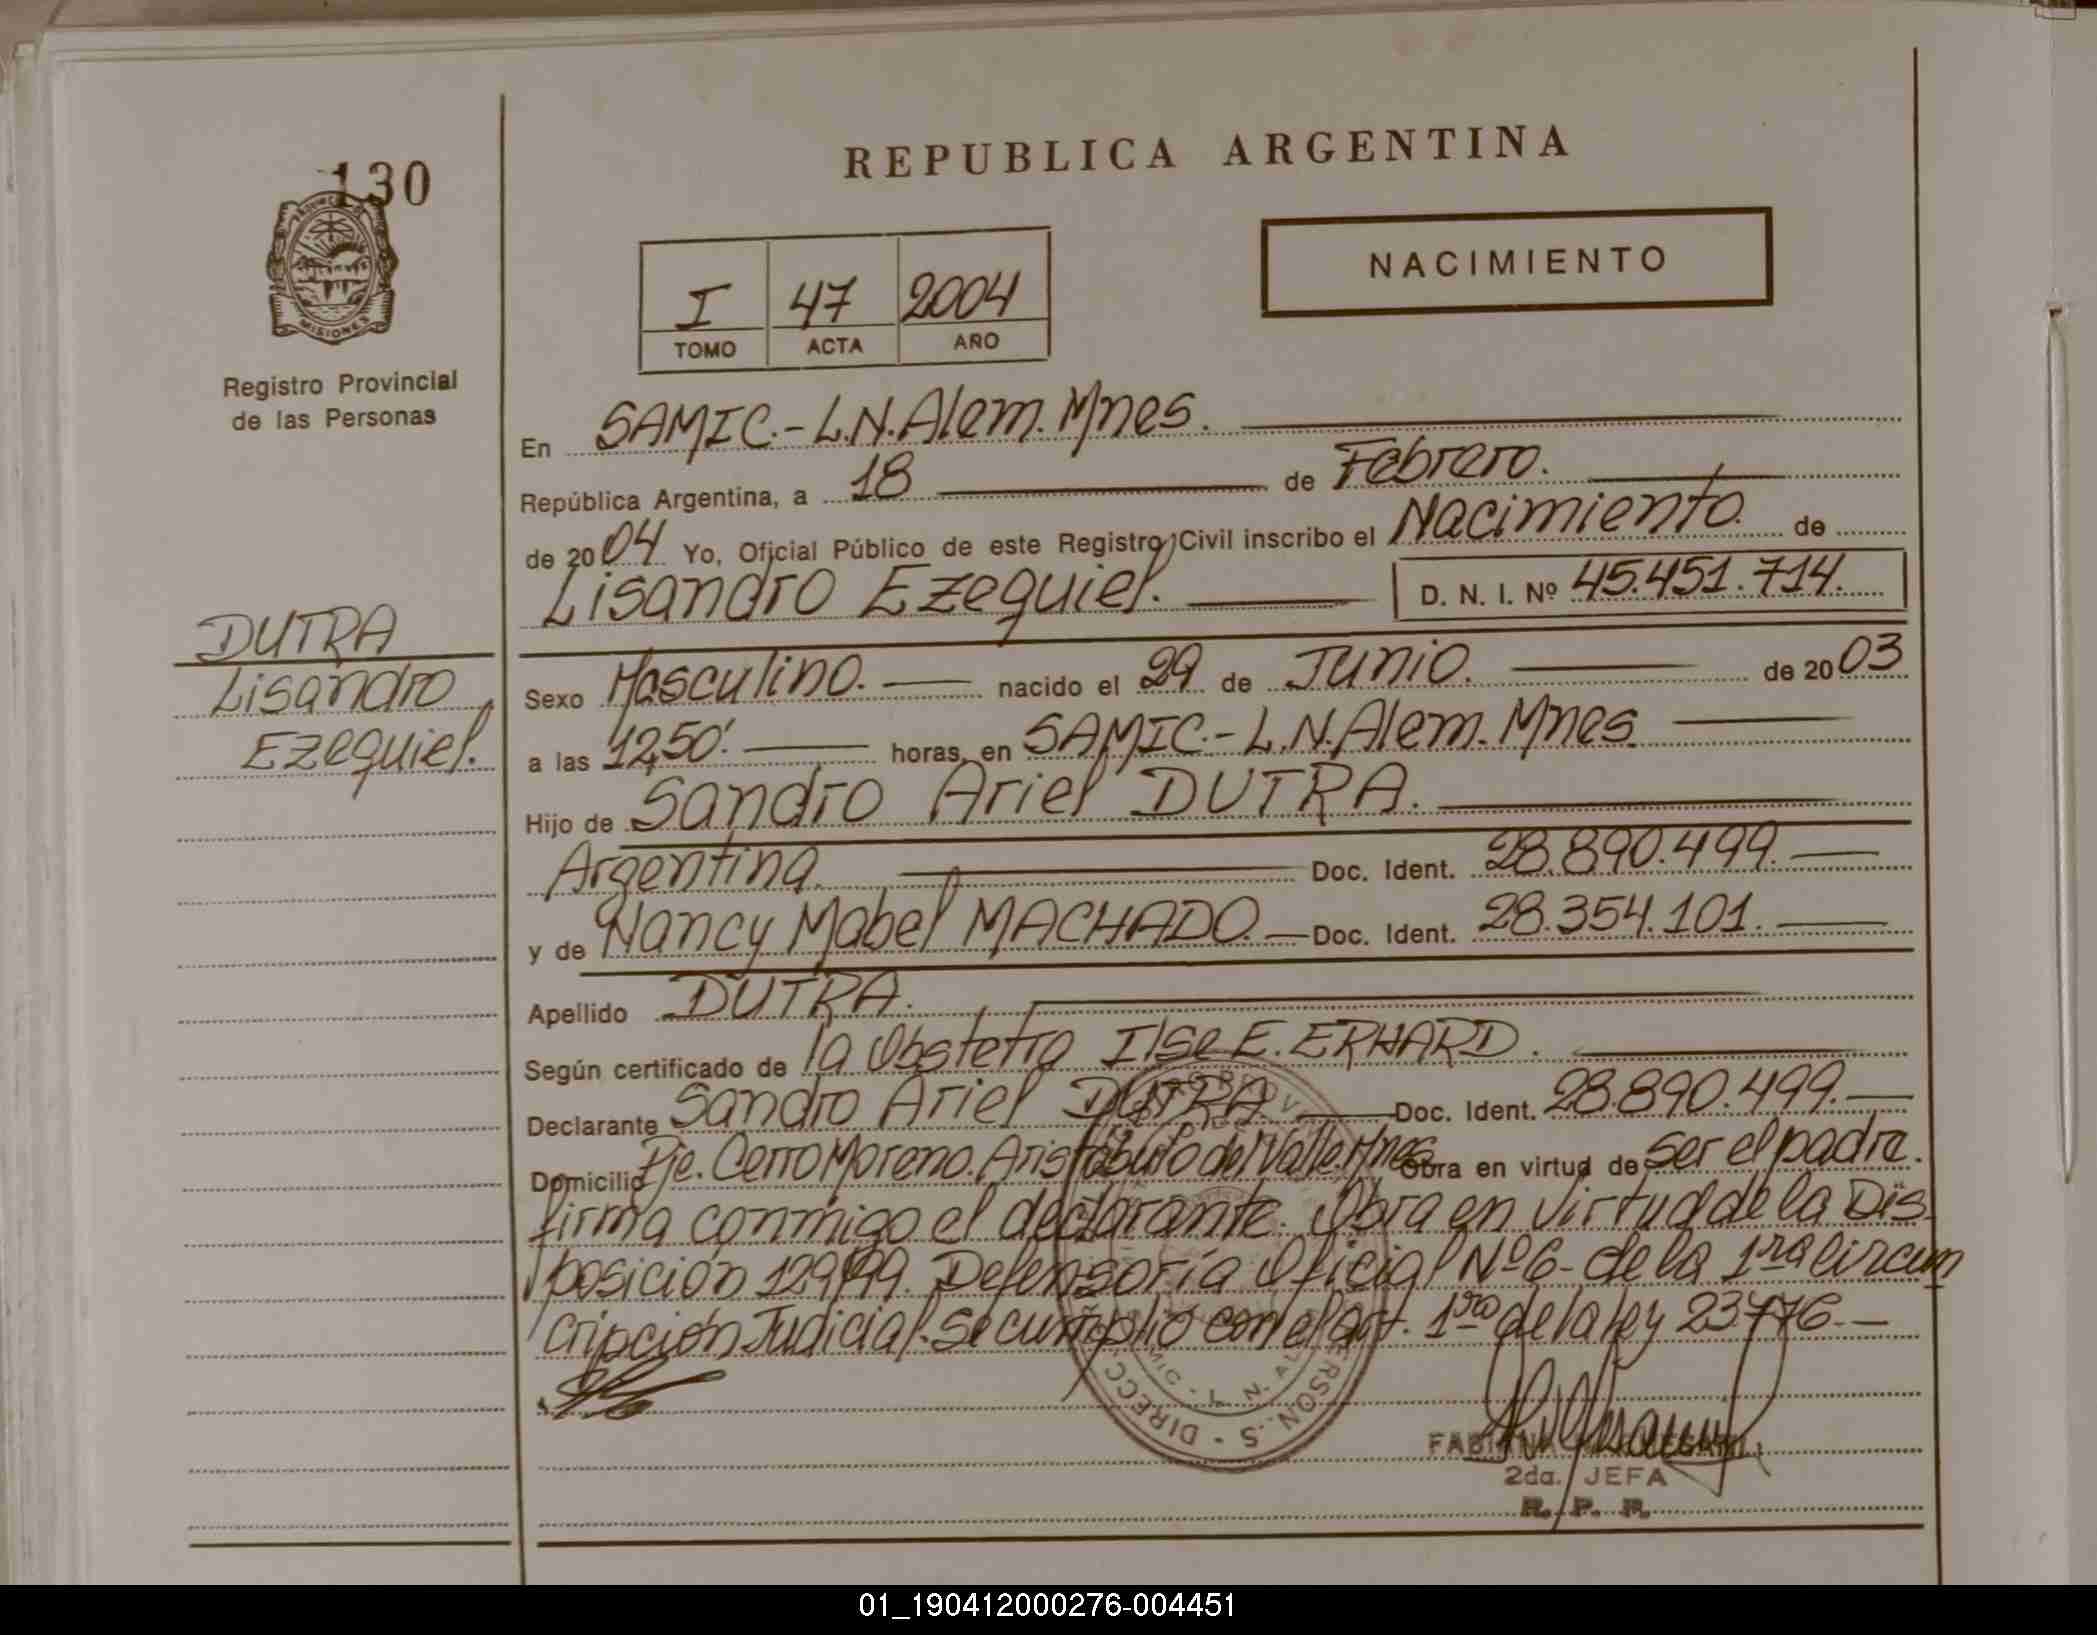 REPUBLICA ARGENTINA
130
MISIONES
Registro Provincial
de las Personas
NACIMIENTO
I 47 2004
TOMO ACTA AÑO
En SAMIC.- L.N.Alem. Mnes.
República Argentina, a 18 de Febrero.
de 2004 Yo, Oficial Público de este Registro Civil inscribo el Nacimiento. de
Lisandro Ezequiel. D. N. I. Nº 45.451.714.
DUTRA
Lisandro
Ezequiel.
Sexo Masculino. nacido el 29 de Junio. de 2003
a las 12,50'. horas, en SAMIC.- L.N.Alem. Mnes
Hijo de Sandro Ariel DUTRA.
Argentina. Doc. Ident. 28.890.499.
y de Nancy Mabel MACHADO. Doc. Ident. 28.354.101.
Apellido DUTRA.
Según certificado de la Obstetra Ilse E. ERHARD.
Declarante Sandro Ariel DUTRA. Doc. Ident. 28.890.499.
Domicilio Pje. Cerro Moreno. Aristóbulo del Valle. Mnes Obra en virtud de ser el padre.
firma conmigo el declarante. Obra en virtud de la Dis
posición 129/99. Defensoría Oficial Nº 6- de la 1ra circun
cripción Judicial. Se cumplió con el art. 1ro de la ley 23776.-
FABIANA
2da. JEFA
R. P. P.
01_190412000276-004451